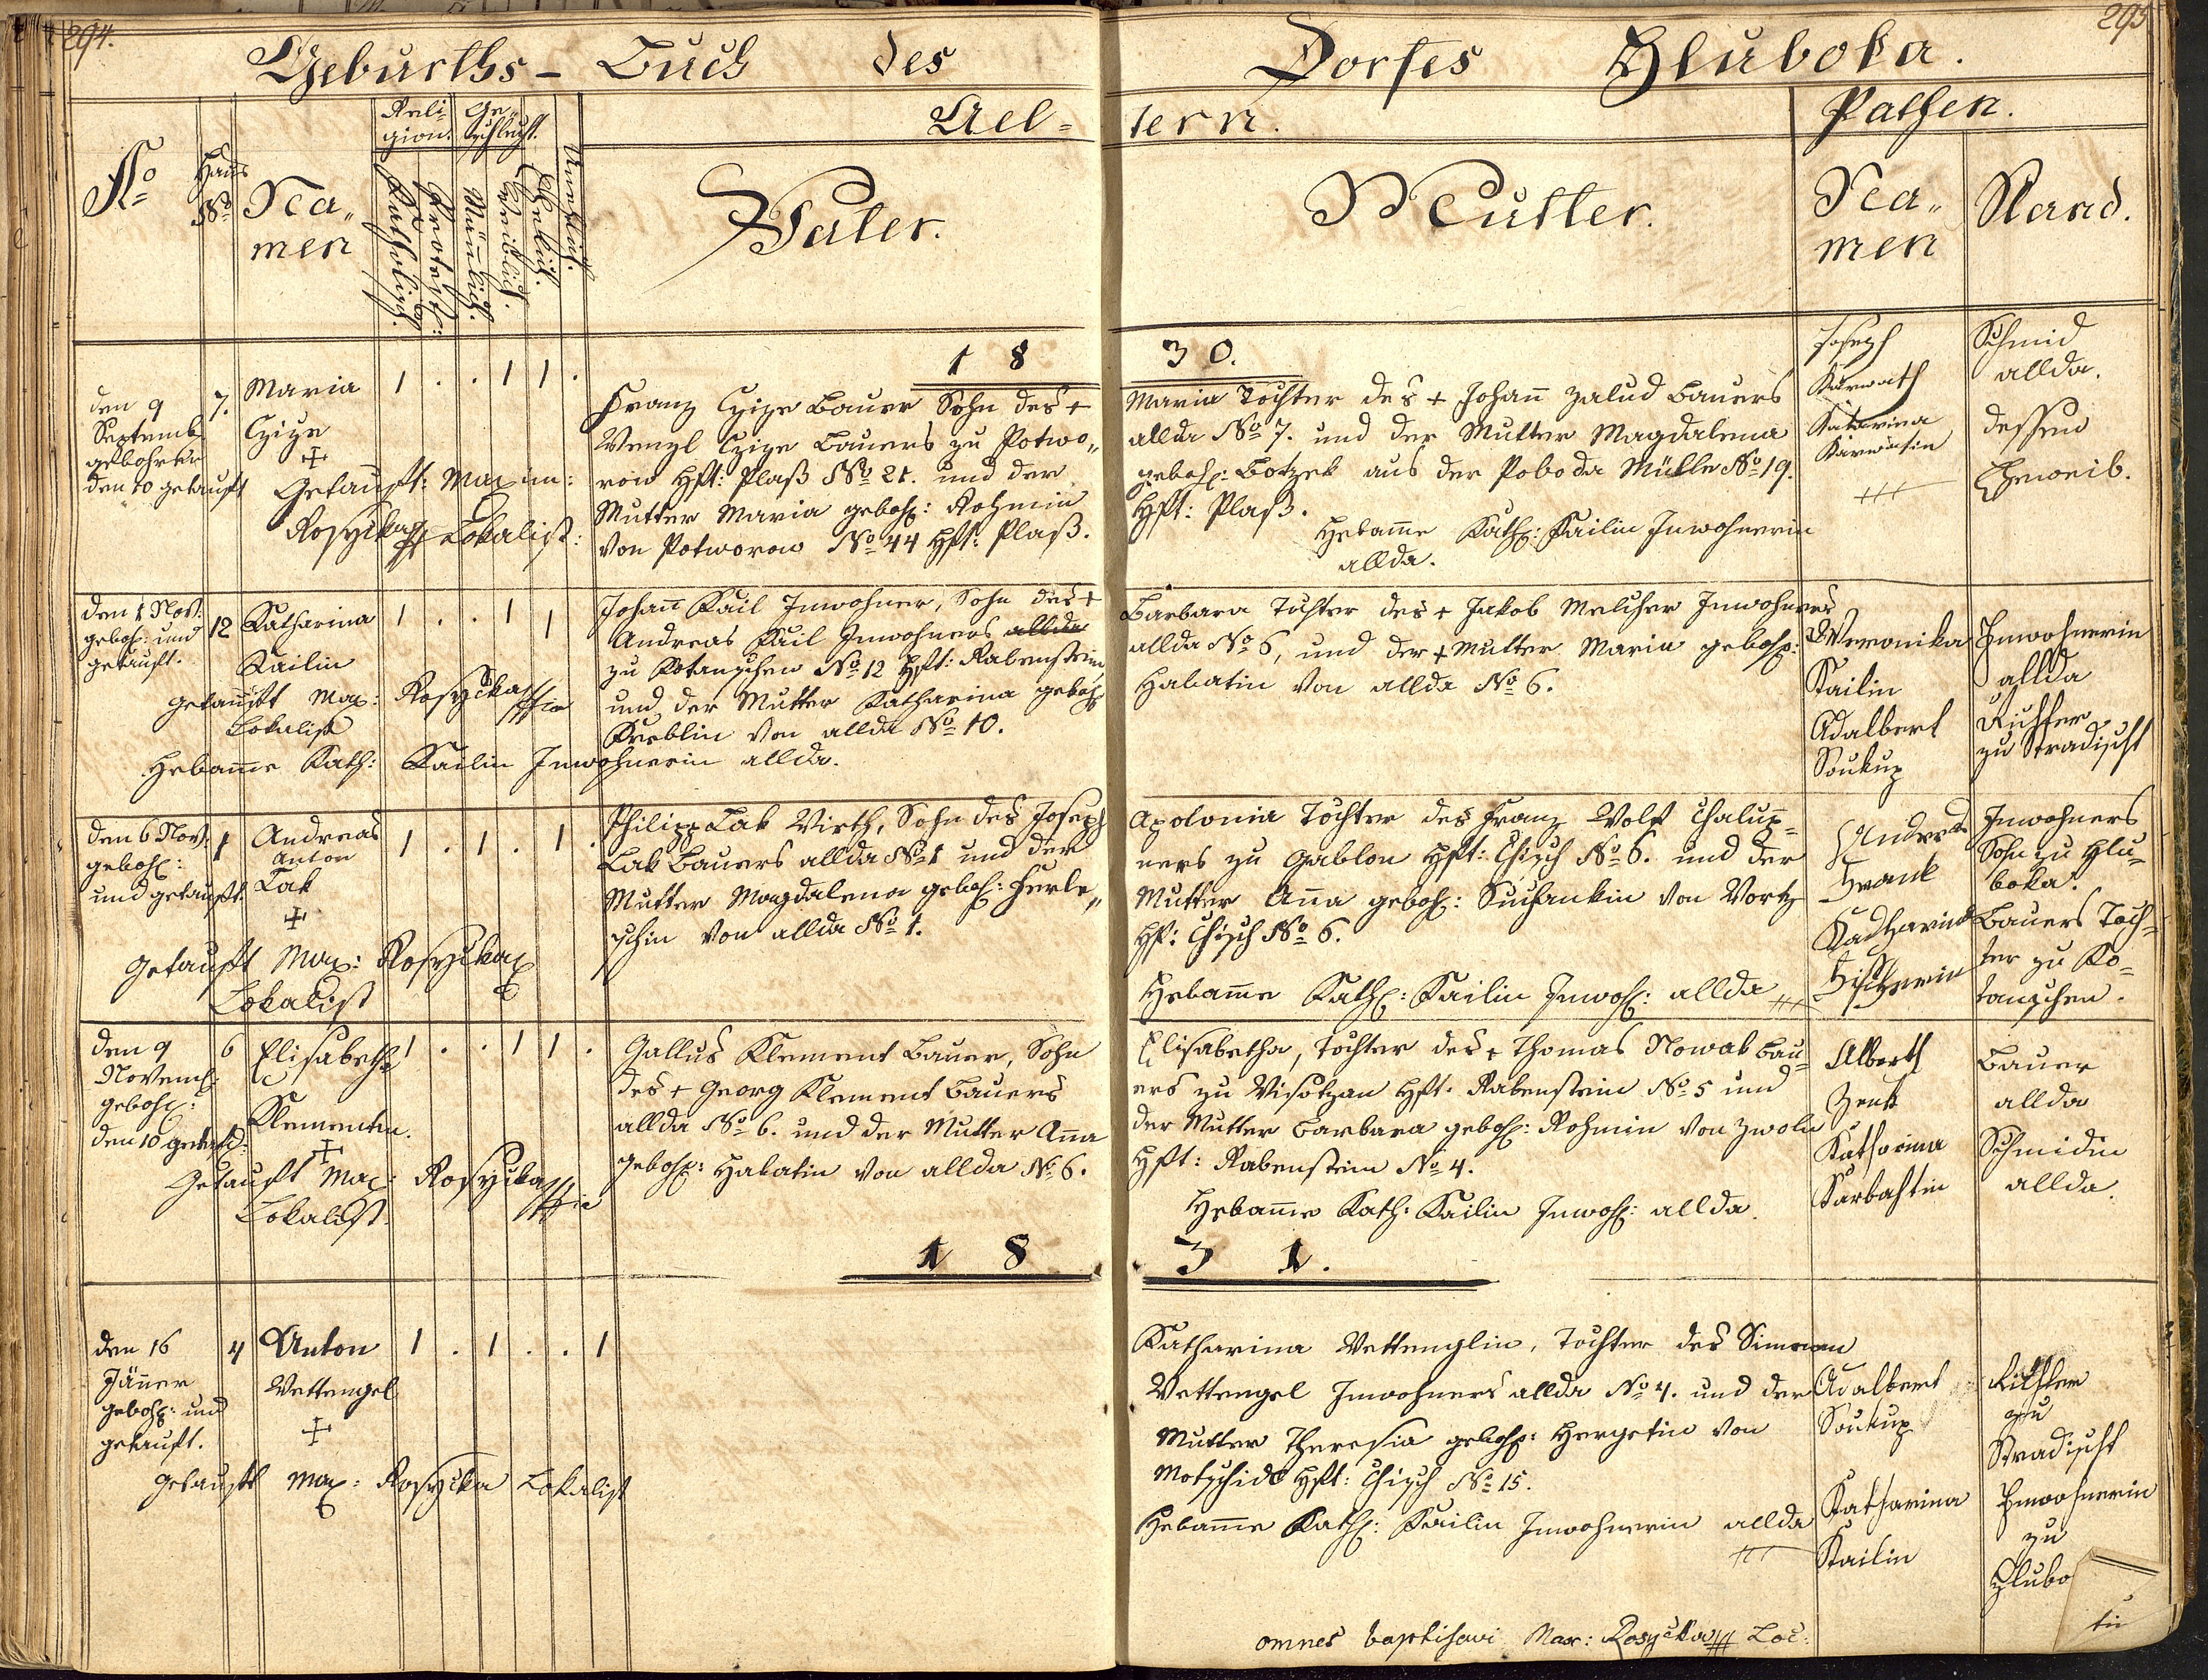 294.
295
Geburths- Buch des Dorfes Hluboka.
No
Haus
No
Na„
men
Reli-
gion.
Ge-
schlecht.
Katholisch.
Protest:
Mänlich.
Weiblich.
Ehelich.
Unehlich.
Ael=
tern.
Vater.
Mutter.
Pathen.
Na„
men
Stand.
18 30.
den 9
Septemb
gebohren
den 10 getauft
7.
Maria
Czize
1 . . 1 1 .
Getauft: Maxim:
Rosyčka Lokalist:
Franz Czize Bauer Sohn des +
Wenzl Czize Bauers zu Potwo„
row Hft: Plaß No 21. und der
Mutter Maria geboh: Rohmin
von Potworow No 44 Hft: Plaß.
Maria Tochter des + Johann Zalud Bauers
allda No 7. und der Mutter Magdalena
geboh: Botzek aus der Poboda Mühle No 19.
Hft: Plaß.
Hebamme Kath: Kailin Inwohnerin
allda.
Joseph
Karwath
Katarina
Karwatin
Schmid
allda.
dessen
Eheweib.
den 1 Nov:
geboh: und
getauft.
12
Katharina
Kailin
1 . . 1 1
getauft Max: Rosyčka
Lokalist
Hebamme Kath: Kailin Inwohnerin allda.
Johann Kail Inwohner, Sohn des +
Andreas Kail Inwohners allda
zu Kotanschen No 12 Hft: Rabenstein
und der Mutter Katharina geboh:
Kreblin von allda No 10.
Barbara Tochter des + Jakob Melcher Inwohners
allda No 6, und der + Mutter Maria geboh:
Habatin von allda No 6.
Weronika
Kailin
Adalbert
Soukup
Inwohnerin
allda
Richter
zu Stradischt
den 6 Nov:
geboh:
und getauft.
1
Andreas
Anton
Lak
1 . 1 . 1 .
Getauft Max: Rosyčka
Lokalist
Philipp Lak Wirth, Sohn des Joseph
Lak Bauers allda No 1 und der
Mutter Magdalena geboh: Herle„
schin von allda No 1.
Apolonia Tochter des Franz Wolf Chalup=
ners zu Gablon Hft: Chisch No 6. und der
Mutter Anna geboh: Suchankin von Wortz
Hft: Chisch No 6.
Hebamme Kath: Kailin Inwoh: allda
Andreas
Frank
Katharina
Fischerin
Inwohners
Sohn zu Hlu=
boka.
Bauers Toch=
ter zu Ko=
tanschen.
den 9
Novemb:
geboh:
den 10 getauft:
6
Elisabetha
Klementin.
1 . . 1 1 .
Getauft Max: Rosyčka
Lokalist.
Gallus Klement Bauer, Sohn
des + Georg Klement Bauers
allda No 6. und der Mutter Anna
geboh: Habatin von allda No 6.
Elisabetha, Tochter des + Thomas Nowak Bau=
ers zu Wisotzan Hft: Rabenstein No 5 und
der Mutter Barbara geboh: Rohmin von Zwoln
Hft: Rabenstein No 4.
Hebamme Kath: Kailin Inwoh: allda.
Alberth
Zenk
Katharina
Karbahtin
Bauer
allda
Schmidin
allda.
18 31.
den 16
Jänner
geboh: und
getauft.
4
Anton
Wettengel
1 . 1 . . 1
getauft Max: Rosyčka Lokalist
Katharina Wettenglin, Tochter des Simon
Wettengel Inwohners allda No 4. und der
Mutter Theresia geboh: Hergetin von
Motschidl Hft: Chisch No 15.
Hebamme Kath: Kailin Inwohnerin allda
Adalbert
Soukup
Katharina
Kailin
Richter
zu
Stradischt
Inwohnerin
zu
Hlubo
omnes baptisavi Max: Rosyčka Loc: